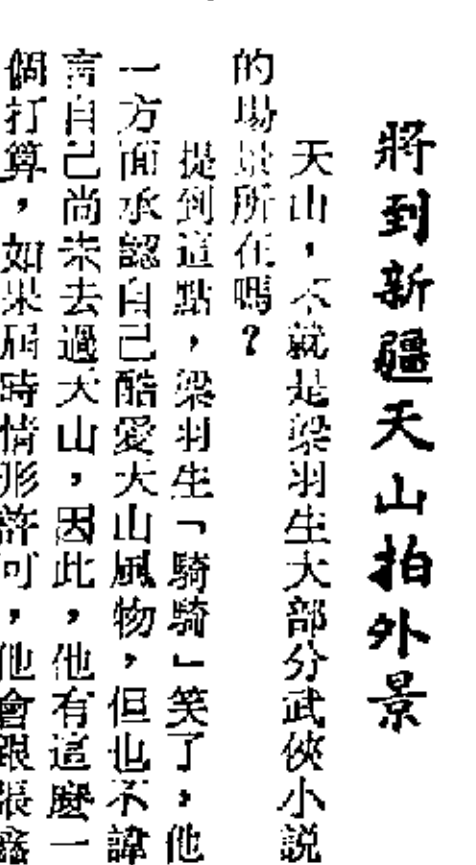 將到新疆天山拍外景
天山，不就是梁羽生大部分武俠小説
的場景所在嗎？
提到這點，梁羽生「騎騎」笑了，他
一方面承認自己酷愛天山風物，但也不諱
言自己尚未去過天山，因此，他有這麼一
個打算，如果屆時情形許可，他會跟張鑫